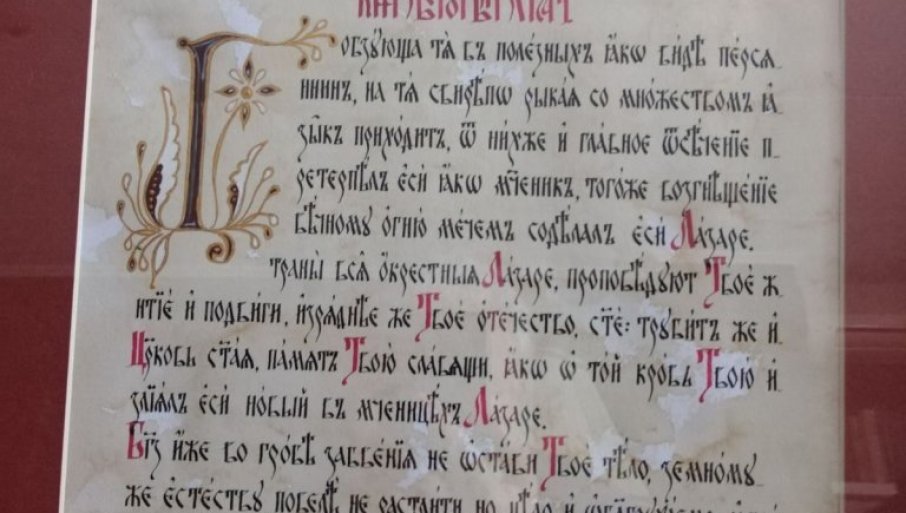 Гобзующа тѧ въ полезныхъ ꙗкѡ видѣ персѧ
нинъ, на тѧ свирѣпѡ рыкаѧ со множествомъ ꙗ
зыкъ приходит, ѿ нихже и главное ѿсѣченїе п
ретерпѣлъ еси ꙗкѡ м҃ченикъ, тогоже возгнѣщенїе
вѣчному огню мечемъ содѣлалъ еси Лазаре.
траны всѧ ѻкрестныѧ Лазаре, проповѣдуют Твое ж
итїе и подвиги, изрѧднѣе же Твое ѻтечество, ст҃е: трубитъ же и
Ц҃рковь ст҃аѧ, памѧть Твою славѧщи, ꙗкѡ ѡ той кровь Твою и
злїѧлъ еси новый въ м҃ченицѣхъ Лазаре.
Бг҃ъ иже во гробѣ забвенїѧ не ѡстави Твое тѣло, земному
же естеству повелѣ не растлити но цѣло и